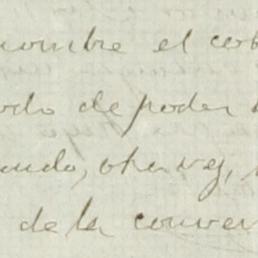 nombre el cob
odo de poder
ando, otra vez,
de la conven